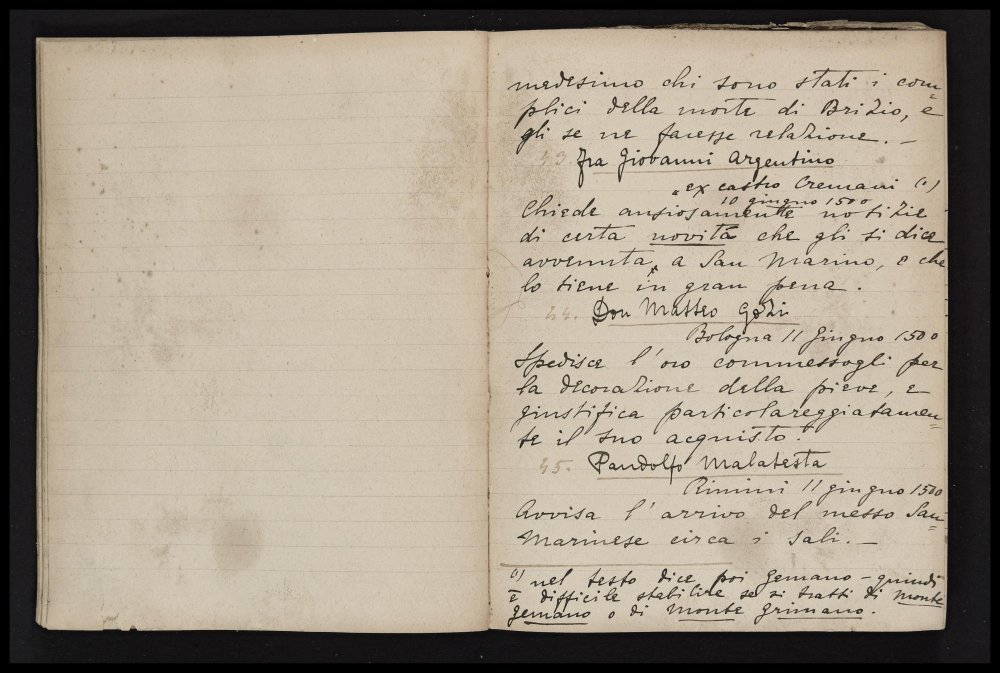 medesimo chi sono stati i com=
plici della morte di Brizio, e
gli se ne facesse relazione. —
43. Fra Giovanni Argentino
"ex castro Cremani (1)
10 giugno 1500
Chiede ansiosamente notizie
di certa novità che gli si dice
avvenuta, a San Marino, e che
lo tiene in gran pena.
44. Don Matteo Gozi
Bologna 11 giugno 1500
Spedisce l'oro commessogli per
la decorazione della pieve, e
giustifica particolareggiatamen=
te il suo acquisto.
45. Pandolfo Malatesta
Rimini 11 giugno 1500
Avvisa l'arrivo del messo San=
Marinese circa i sali. —
(1) nel testo dice poi Gemano - quindi
è difficile stabilire se si tratti di Monte
Gemano o di Monte Grimano.